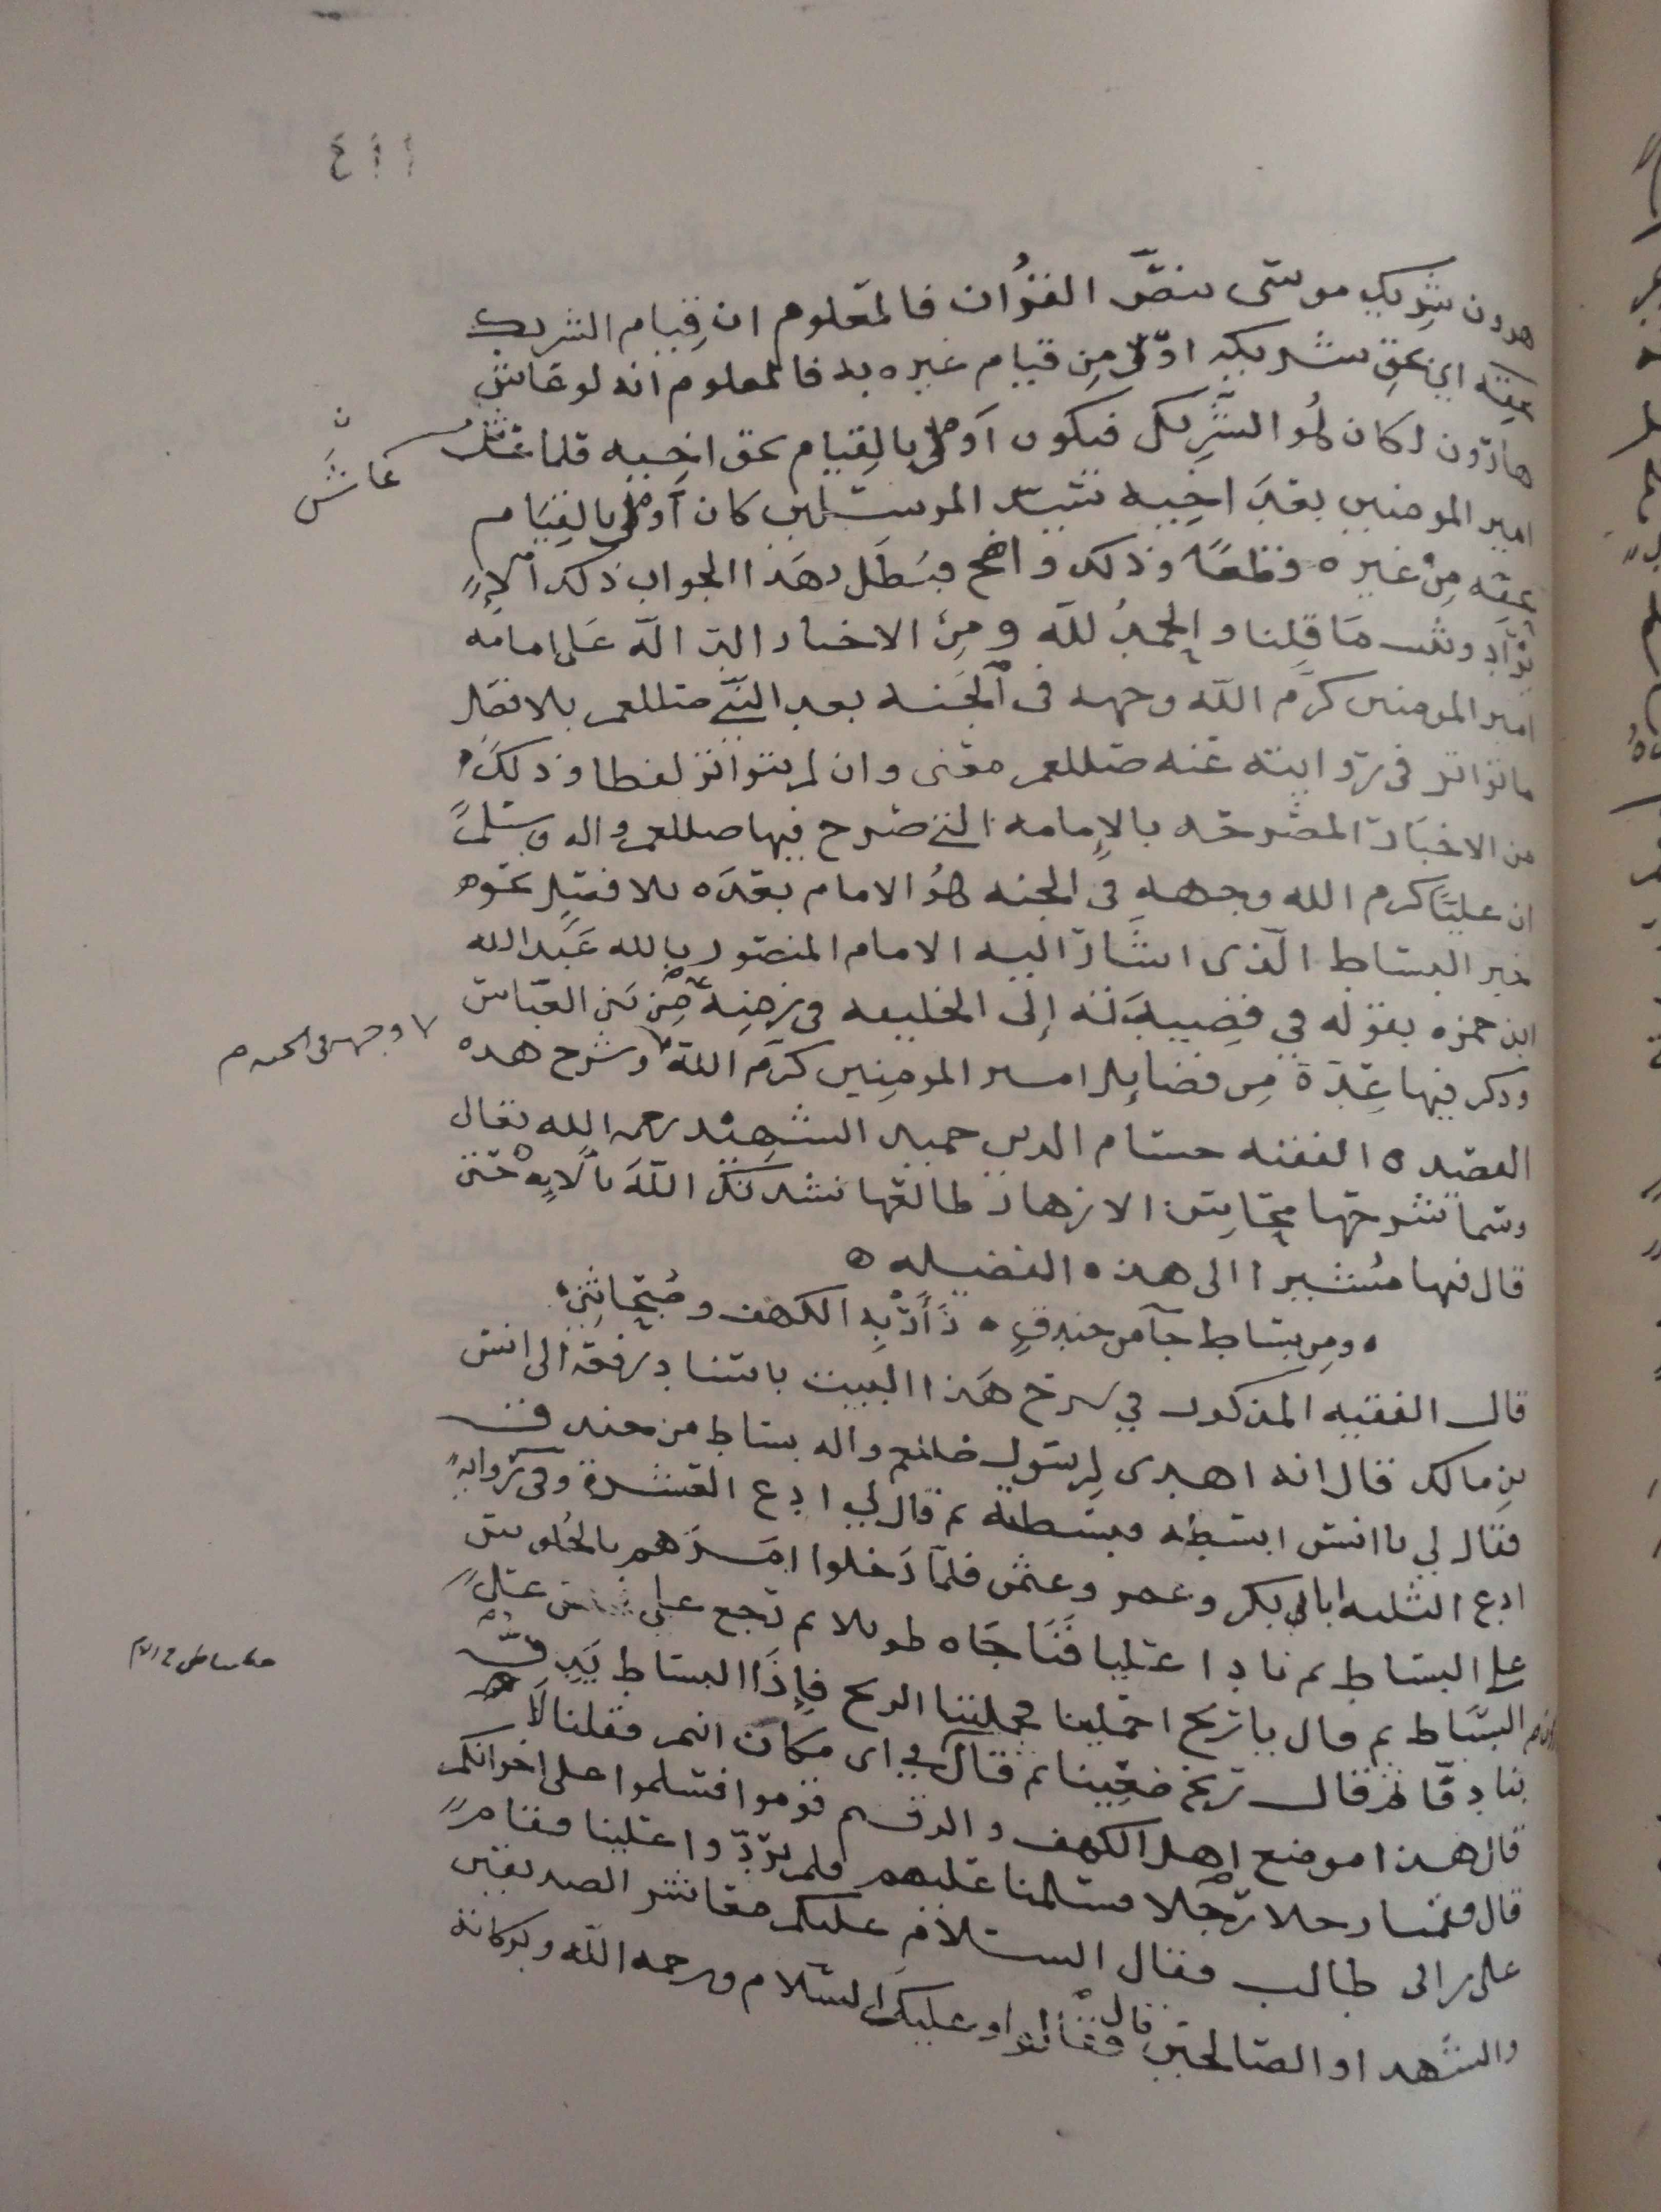 ٤١١
هرون شريك موسى بنصّ القرُان فالمعلوم ان قِيام الشريك
بحقه اي بحق شريكه اوْلى مِن قيام غيره به فالمعلوم انه لو عاش
هارون لكان هُو الشَّرِيك فيكون أولى بالقِيام بحق اخِيه فلما عاش
عاشَ ن
امير المومنين بعدَ اخِيه سيّد المرسَلين كان أَولى بالقِيَام
بحقه مِنْ غيره قطعًا وذلك واضح فبَطَل بهَذا الجواب ذلك الإ
يْرَاد وثبت مَا قلِنا والحمدُ للّه ومِن الاخبار الدالّه عَلى امامه
امير المومنين كرّم اللّه وجهه فى الجنه بعد النّبي صللعم بلا فصَل
ما تواتر فى رِوايته عَنه صللعم معْنى وان لم يتواتر لفظا وذلكَ
من الاخبَار المصَرحه بالإمامه التى صَرح فيها صللعم واله وسَلم
ان عليّا كرم الله وجهه فى الجنه هُو الامام بعْدَه بلا فصْلٍ نحوه
خبر البسَاط الَّذى اشَارَ اليه الامام المنصَور بالله عَبْدالله
ابن حمزه بقوله في قصِيدَته إلى الخليعه في زمنِه مِن بَني العبّاس
وذكر فيها عِدّة مِن فضايل امير المومنين كرّمَ اللهُ وشرح هذه
٧ وجهه فى الجنه م
القصيده الفقيه حسَام الدين حميد الشهيْد رحمه الله تعالى
وسَما شرحَها محَاسِن الازهار طالعْها نشدتك اللّهَ بالايه حَتى
قال فيها مُشيرا الى هذه الفضيله ه
ه ومِن بسَاط جآ من خندفٍ ه ذَأَدّ به الكهف وصُبحَانِي ه
قال الفقيه المذكور في شرح هَذا البيت باسنَاد رفعه الى انس
بن مالك قال انه اهدى لِرسَول صللعم واله بسَاط من خندف
فقال لي يا انس ابسَطه فبسَطته ثم قال لي ادع العَشرة وفي رواية
ادع الثلثه ابا بكر وعمر وعثمن فلمّا دَخلوا امَرَهم بالجُلوس
على البسَاط ثم نادا عليا فَنَاجَاه طويلا ثم رَجع علي
البسَاط ثم قال يا ريح احمِلينا فحملتنا الريح فإذَا البسَاط يَدِفُّ
بنا دفّا ثم قال ريح ضعِينا ثم قال في اى مكان انتم فقلنا لَا
قال هذا موضع اهل الكهف والرقيم قوموا فسَلموا على اخوانكم
قال فقمنا رجلا رَجلا فسَلمنا عليهم فلم يردّوا علينا فقام
علي ن ابى طالب فقال السَلام عليكم معَاشر الصديقين
والشهدا والصَالحين قال فقالوا وعليك السَلام ورحمه اللّه وبركاته